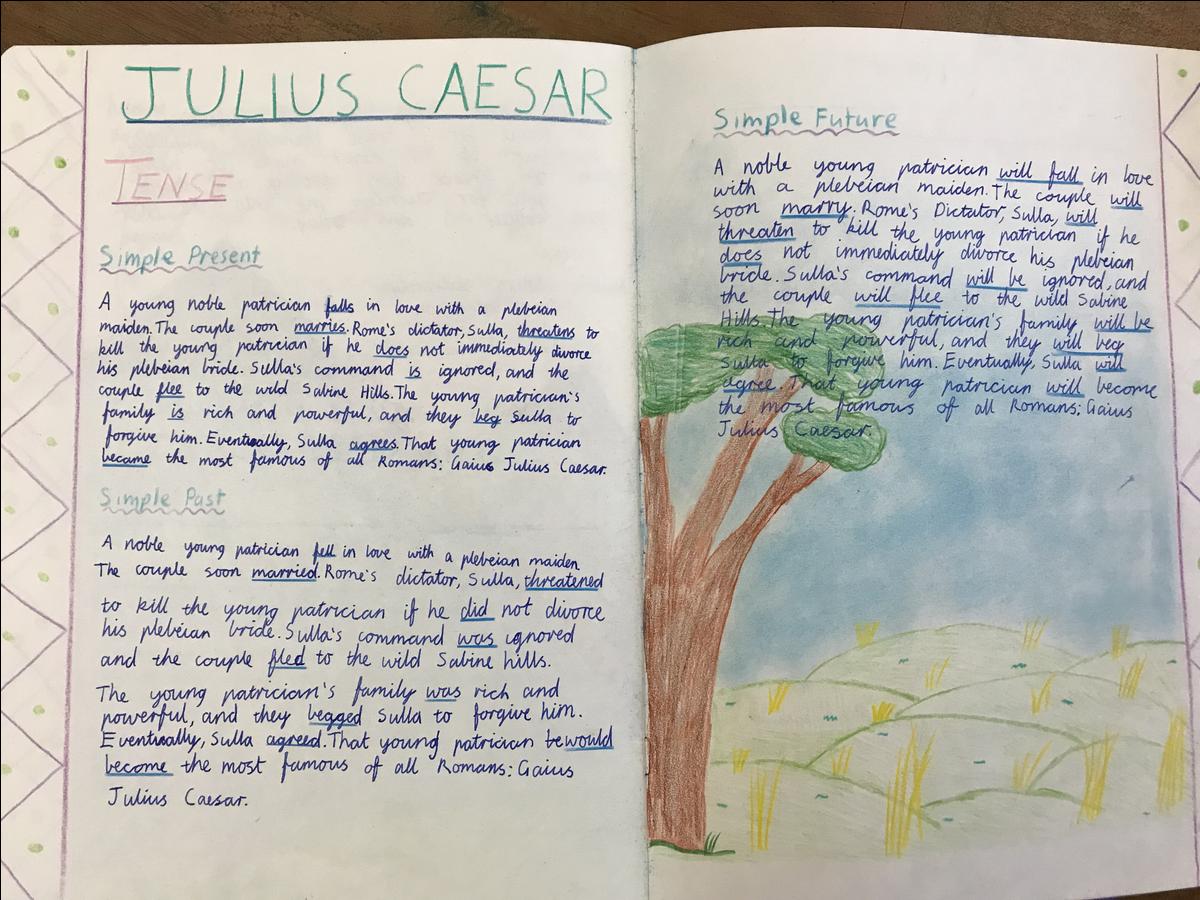 JULIUS CAESAR
TENSE
Simple Present
A young noble patrician falls in love with a plebeian
maiden. The couple soon marries. Rome's dictator, Sulla, threatens to
kill the young patrician if he does not immediately divorce
his plebeian bride. Sulla's command is ignored, and the
couple flee to the wild Sabine Hills. The young patrician's
family is rich and powerful, and they beg Sulla to
forgive him. Eventually, Sulla agrees. That young patrician
became the most famous of all Romans: Gaius Julius Caesar.
Simple Past
A noble young patrician fell in love with a plebeian maiden
The couple soon married. Rome's dictator, Sulla, threatened
to kill the young patrician if he did not divorce
his plebeian bride. Sulla's command was ignored
and the couple fled to the wild Sabine hills.
The young patrician's family was rich and
powerful, and they begged Sulla to forgive him.
Eventually, Sulla agreed. That young patrician bewould
become the most famous of all Romans: Gaius
Julius Caesar.
Simple Future
A noble young patrician will fall in love
with a plebeian maiden. The couple will
soon marry. Rome's Dictator, Sulla, will
threaten to kill the young patrician if he
does not immediately divorce his plebeian
bride. Sulla's command will be ignored, and
the couple will flee to the wild Sabine
Hills. The young patrician's family will be
rich and powerful, and they will beg
Sulla to forgive him. Eventually, Sulla will
agree. That young patrician will become
the most famous of all Romans; Gaius
Julius Caesar.